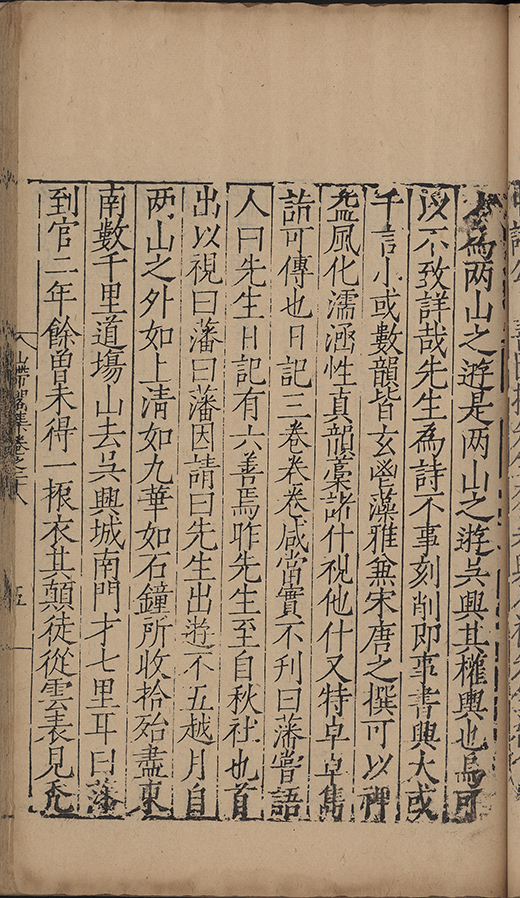 為兩山之遊是兩山之遊吳興其權輿也烏可
以不致詳哉先生為詩不事刻削即事書興大或
千言小或數韻皆玄邃藻雅兼宋唐之撰可以裨
益風化濡涵性真韻藁諸什視他什又特卓卓雋
詣可傳也日記三卷卷卷咸當實不刊曰藩嘗語
人曰先生日記有六善焉昨先生至自秋社也首
出以視曰藩曰藩因請曰先生出遊不五越月自
兩山之外如上清如九華如石鐘所收拾殆盡東
南數千里道塲山去吳興城南門才七里耳曰藩
到官二年餘曽未得一振衣其顛徒從雲表見禿
山帶閣集卷之十八
五